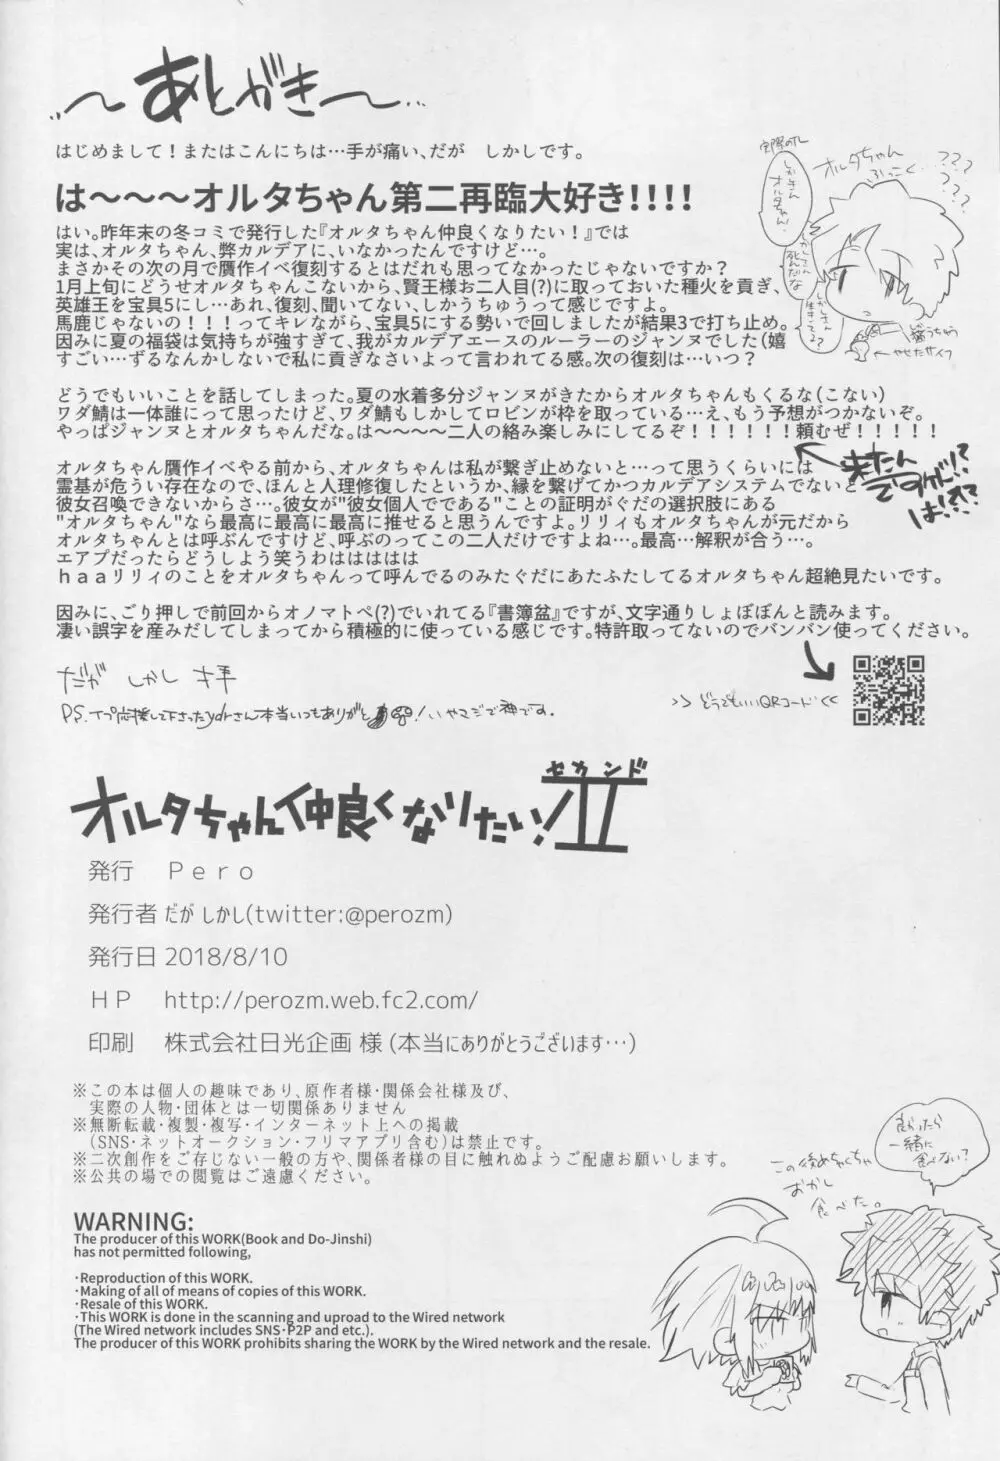 ～あとがき～…
はじめまして！またはこんにちは…手が痛い、だが　しかしです。
は～～～オルタちゃん第二再臨大好き！！！！
はい。昨年末の冬コミで発行した『オルタちゃん仲良くなりたい！』では
実は、オルタちゃん、弊カルデアに、いなかったんですけど…。
まさかその次の月で贋作イベ復刻するとはだれも思ってなかったじゃないですか？
1月上旬にどうせオルタちゃんこないから、賢王様お二人目(?)に取っておいた種火を貢ぎ、
英雄王を宝具5にし…あれ、復刻、聞いてない、しかうちゅうって感じですよ。
馬鹿じゃないの！！！ってキレながら、宝具5にする勢いで回しましたが結果3で打ち止め。
因みに夏の福袋は気持ちが強すぎて、我がカルデアエースのルーラーのジャンヌでした(嬉
すごい…ずるなんかしないで私に貢ぎなさいよって言われてる感。次の復刻は…いつ？
どうでもいいことを話してしまった。夏の水着多分ジャンヌがきたからオルタちゃんもくるな(こない)
ワダ鯖は一体誰にって思ったけど、ワダ鯖もしかしてロビンが枠を取っている…え、もう予想がつかないぞ。
やっぱジャンヌとオルタちゃんだな。は～～～～二人の絡み楽しみにしてるぞ！！！！！！頼むぜ！！！！！
来たん
ですけど!?
は!?!?
オルタちゃん贋作イベやる前から、オルタちゃんは私が繋ぎ止めないと…って思うくらいには
霊基が危うい存在なので、ほんと人理修復したというか、縁を繋げてかつカルデアシステムでないと
彼女召喚できないからさ…。彼女が"彼女個人でである"ことの証明がぐだの選択肢にある
"オルタちゃん"なら最高に最高に最高に推せると思うんですよ。リリィもオルタちゃんが元だから
オルタちゃんとは呼ぶんですけど、呼ぶのってこの二人だけですよね…。最高…解釈が合う…。
エアプだったらどうしよう笑うわははははは
ｈａａリリィのことをオルタちゃんって呼んでるのみたぐだにあたふたしてるオルタちゃん超絶見たいです。
因みに、ごり押しで前回からオノマトペ(?)でいれてる『書簿盆』ですが、文字通りしょぼぼんと読みます。
凄い誤字を産みだしてしまってから積極的に使っている感じです。特許取ってないのでバンバン使ってください。
だが しかし 拝
>> どうでもいいQRコード <<
オルタちゃん仲良くなりたい!II
セカンド
発行　Ｐｅｒｏ
発行者 だが しかし(twitter:@perozm)
発行日 2018/8/10
ＨＰ　http://perozm.web.fc2.com/
印刷　株式会社日光企画 様 (本当にありがとうございます…)
※この本は個人の趣味であり、原作者様・関係会社様及び、
実際の人物・団体とは一切関係ありません
※無断転載・複製・複写・インターネット上への掲載
(SNS・ネットオークション・フリマアプリ含む)は禁止です。
※二次創作をご存じない一般の方や、関係者様の目に触れぬようご配慮お願いします。
※公共の場での閲覧はご遠慮ください。
WARNING:
The producer of this WORK(Book and Do-Jinshi)
has not permitted following,
・Reproduction of this WORK.
・Making of all of means of copies of this WORK.
・Resale of this WORK.
・This WORK is done in the scanning and uproad to the Wired network
(The Wired network includes SNS・P2P and etc.).
The producer of this WORK prohibits sharing the WORK by the Wired network and the resale.
もらったら
一緒に
食べない?
この後めちゃくちゃ
おかし
食べた。